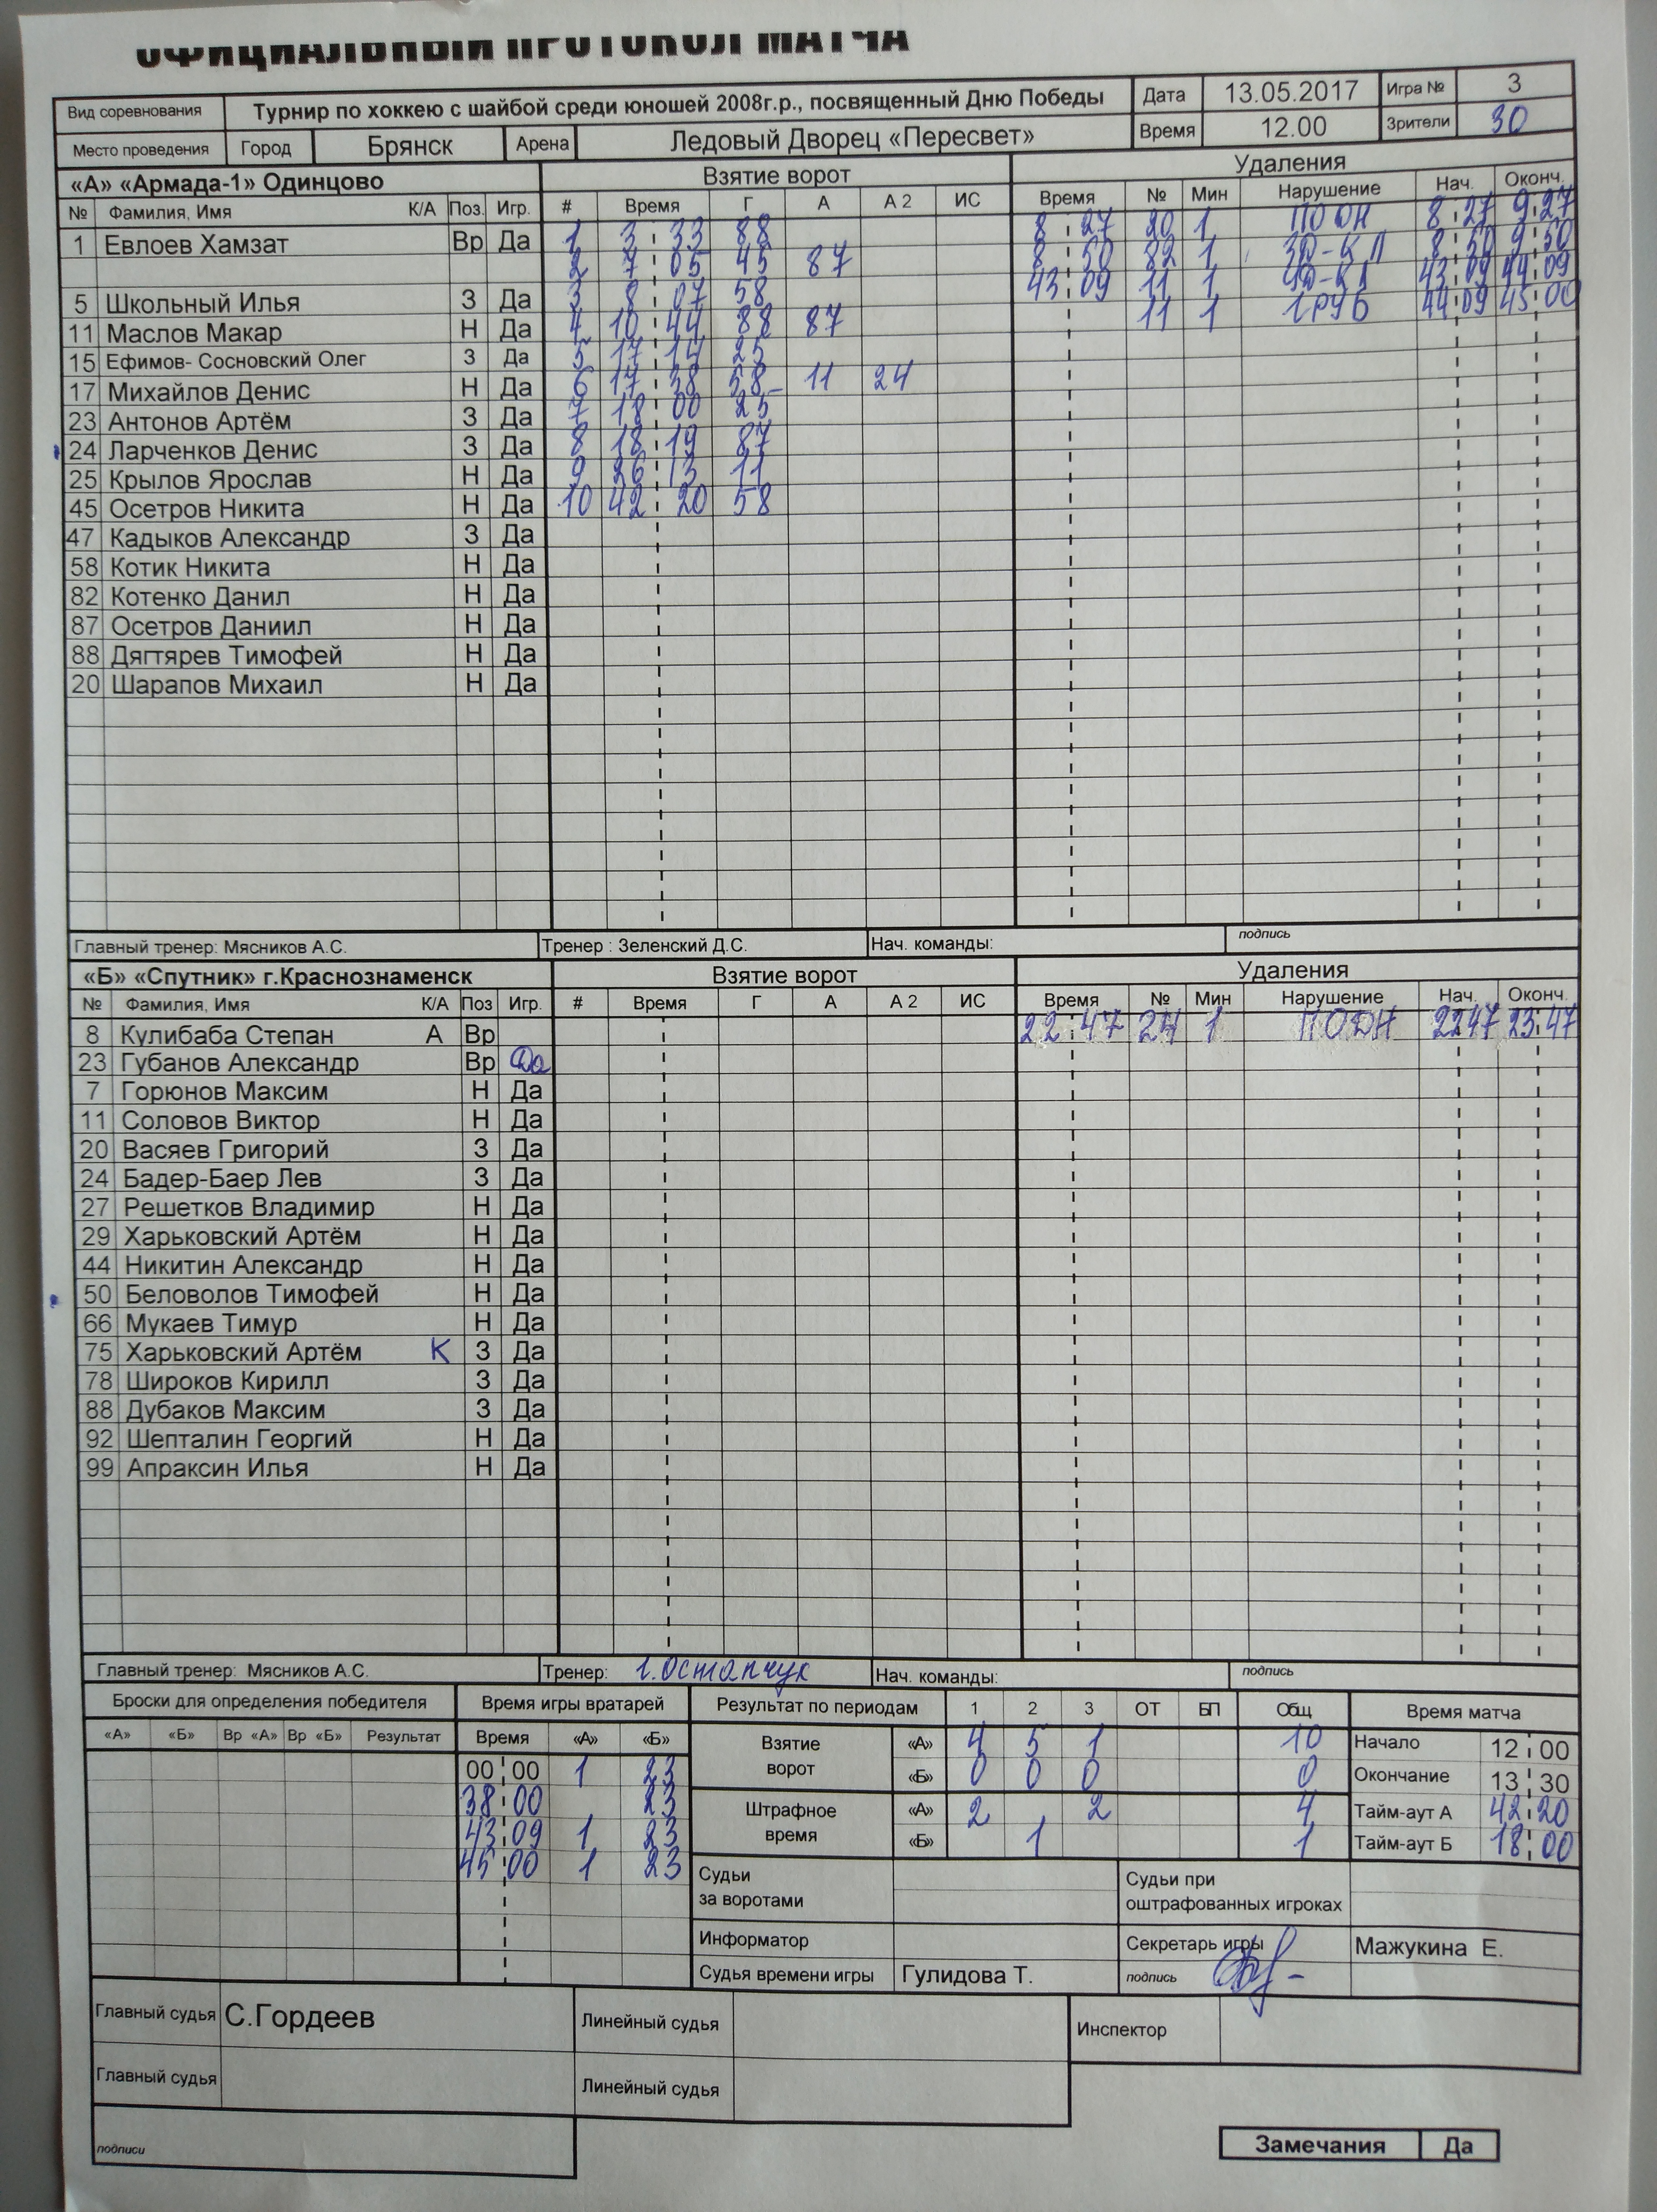 ОФИЦИАЛЬНЫЙ ПРОТОКОЛ МАТЧА
Вид соревнования Турнир по хоккею с шайбой среди юношей 2008г.р., посвященный Дню Победы Дата 13.05.2017 Игра № 3
Место проведения Город Брянск Арена Ледовый Дворец «Пересвет» Время 12.00 Зрители 30
«А» «Армада-1» Одинцово Взятие ворот Удаления
№ Фамилия, Имя К/А Поз. Игр. # Время Г А А 2 ИС Время № Мин Нарушение Нач. Оконч.
1 Евлоев Хамзат Вр Да 1 3 33 88 8 27 20 1 ПОДН 8 27 9 27
2 7 05 45 87 8 50 82 1 8 50 9 50
5 Школьный Илья З Да 3 8 07 58 43 09 11 1 43 09 44 09
11 Маслов Макар Н Да 4 10 44 88 87 11 1 ГРУБ 44 09 45 00
15 Ефимов- Сосновский Олег З Да 5 17 14 25
17 Михайлов Денис Н Да 6 17 38 58 11 24
23 Антонов Артём З Да 7 18 00 25
24 Ларченков Денис З Да 8 18 19 87
25 Крылов Ярослав Н Да 9 26 13 11
45 Осетров Никита Н Да 10 42 20 58
47 Кадыков Александр З Да
58 Котик Никита Н Да
82 Котенко Данил Н Да
87 Осетров Даниил Н Да
88 Дягтярев Тимофей Н Да
20 Шарапов Михаил Н Да
Главный тренер: Мясников А.С. Тренер : Зеленский Д.С. Нач. команды: подпись
«Б» «Спутник» г.Краснознаменск Взятие ворот Удаления
№ Фамилия, Имя К/А Поз Игр. # Время Г А А 2 ИС Время № Мин Нарушение Нач. Оконч.
8 Кулибаба Степан А Вр 22 47 24 1 ПОДН 22 47 23 47
23 Губанов Александр Вр Да
7 Горюнов Максим Н Да
11 Соловов Виктор Н Да
20 Васяев Григорий З Да
24 Бадер-Баер Лев З Да
27 Решетков Владимир Н Да
29 Харьковский Артём Н Да
44 Никитин Александр Н Да
50 Беловолов Тимофей Н Да
66 Мукаев Тимур Н Да
75 Харьковский Артём К З Да
78 Широков Кирилл З Да
88 Дубаков Максим З Да
92 Шепталин Георгий Н Да
99 Апраксин Илья Н Да
Главный тренер: Мясников А.С. Тренер: Г.Остапчук Нач. команды: подпись
Броски для определения победителя Время игры вратарей Результат по периодам 1 2 3 ОТ БП Общ Время матча
«А» «Б» Вр «А» Вр «Б» Результат Время «А» «Б» Взятие ворот «А» 4 5 1 10 Начало 12 00
00 00 1 23 «Б» 0 0 0 0 Окончание 13 30
38 00 23 Штрафное время «А» 2 2 4 Тайм-аут А 42 20
43 09 1 23 «Б» 1 1 Тайм-аут Б 18 00
45 00 1 23 Судьи за воротами Судьи при оштрафованных игроках
Информатор Секретарь игры Мажукина Е.
Судья времени игры Гулидова Т. подпись
Главный судья С.Гордеев Линейный судья Инспектор
Главный судья Линейный судья
подписи
Замечания Да